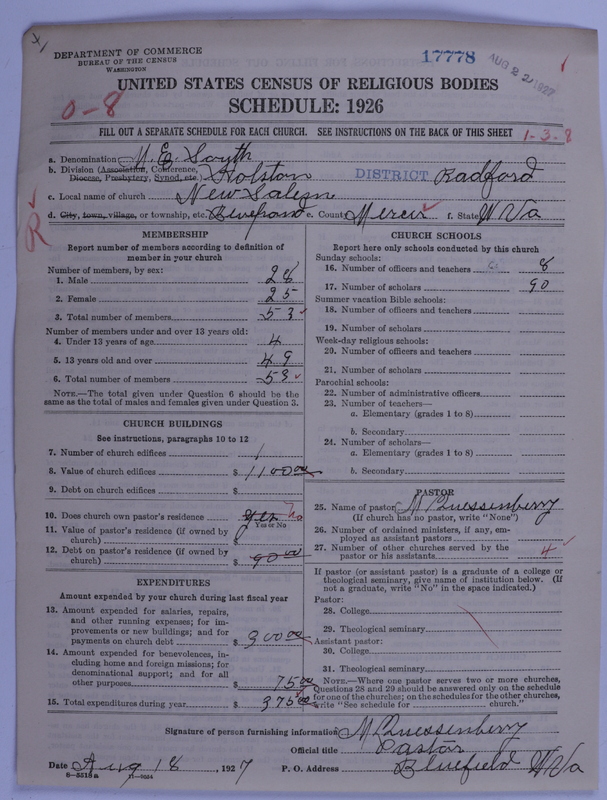 DEPARTMENT OF COMMERCE
BUREAU OF THE CENSUS
WASHINGTON
17778
AUG 22 1927
UNITED STATES CENSUS OF RELIGIOUS BODIES
SCHEDULE: 1926
0-8
FILL OUT A SEPARATE SCHEDULE FOR EACH CHURCH. SEE INSTRUCTIONS ON THE BACK OF THIS SHEET
1-3.8
a. Denomination M. E. South
b. Division (Association, Conference, Diocese, Presbytery, Synod, etc.) Holston DISTRICT Radford
c. Local name of church New Salem
d. City, town, village, or township, etc. e. County Mercer f. State W Va
R
MEMBERSHIP
Report number of members according to definition of
member in your church
Number of members, by sex:
1. Male 28
2. Female 25
3. Total number of members 53
Number of members under and over 13 years old:
4. Under 13 years of age 4
5. 13 years old and over 49
6. Total number of members 53
NOTE.—The total given under Question 6 should be the
same as the total of males and females given under Question 3.
CHURCH BUILDINGS
See instructions, paragraphs 10 to 12
7. Number of church edifices 1
8. Value of church edifices $ 1100 00
9. Debt on church edifices $
10. Does church own pastor's residence Yes No
Yes or No
11. Value of pastor's residence (if owned by
church) $
12. Debt on pastor's residence (if owned by
church) $ 90 00
EXPENDITURES
Amount expended by your church during last fiscal year
13. Amount expended for salaries, repairs,
and other running expenses; for im-
provements or new buildings; and for
payments on church debt $ 300 00
14. Amount expended for benevolences, in-
cluding home and foreign missions; for
denominational support; and for all
other purposes $ 75 00
15. Total expenditures during year $ 375 00
CHURCH SCHOOLS
Report here only schools conducted by this church
Sunday schools:
16. Number of officers and teachers 8
17. Number of scholars 90
Summer vacation Bible schools:
18. Number of officers and teachers
19. Number of scholars
Week-day religious schools:
20. Number of officers and teachers
21. Number of scholars
Parochial schools:
22. Number of administrative officers
23. Number of teachers—
a. Elementary (grades 1 to 8)
b. Secondary
24. Number of scholars—
a. Elementary (grades 1 to 8)
b. Secondary
PASTOR
25. Name of pastor M Quessenberry
(If church has no pastor, write "None")
26. Number of ordained ministers, if any, em-
ployed as assistant pastors
27. Number of other churches served by the
pastor or his assistants 4
If pastor (or assistant pastor) is a graduate of a college or
theological seminary, give name of institution below. (If
not a graduate, write "No" in the space indicated.)
Pastor:
28. College
29. Theological seminary
Assistant pastor:
30. College
31. Theological seminary
NOTE.—Where one pastor serves two or more churches,
Questions 28 and 29 should be answered only on the schedule
for one of the churches; on the schedules for the other churches,
write "See schedule for church."
Signature of person furnishing information M Quessenberry
Official title Pastor
Date Aug 18, 1927 P. O. Address Bluefield W Va
8-5518a 11-9034